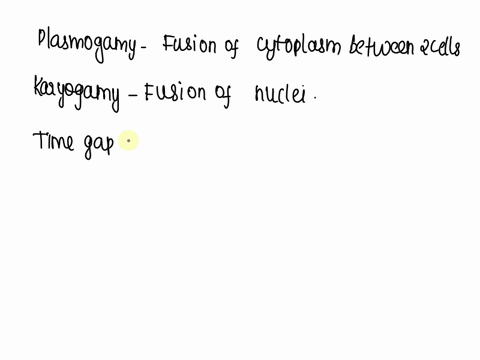 Plasmogamy - Fusion of cytoplasm between 2cells
Karyogamy - Fusion of nuclei.
Time gap